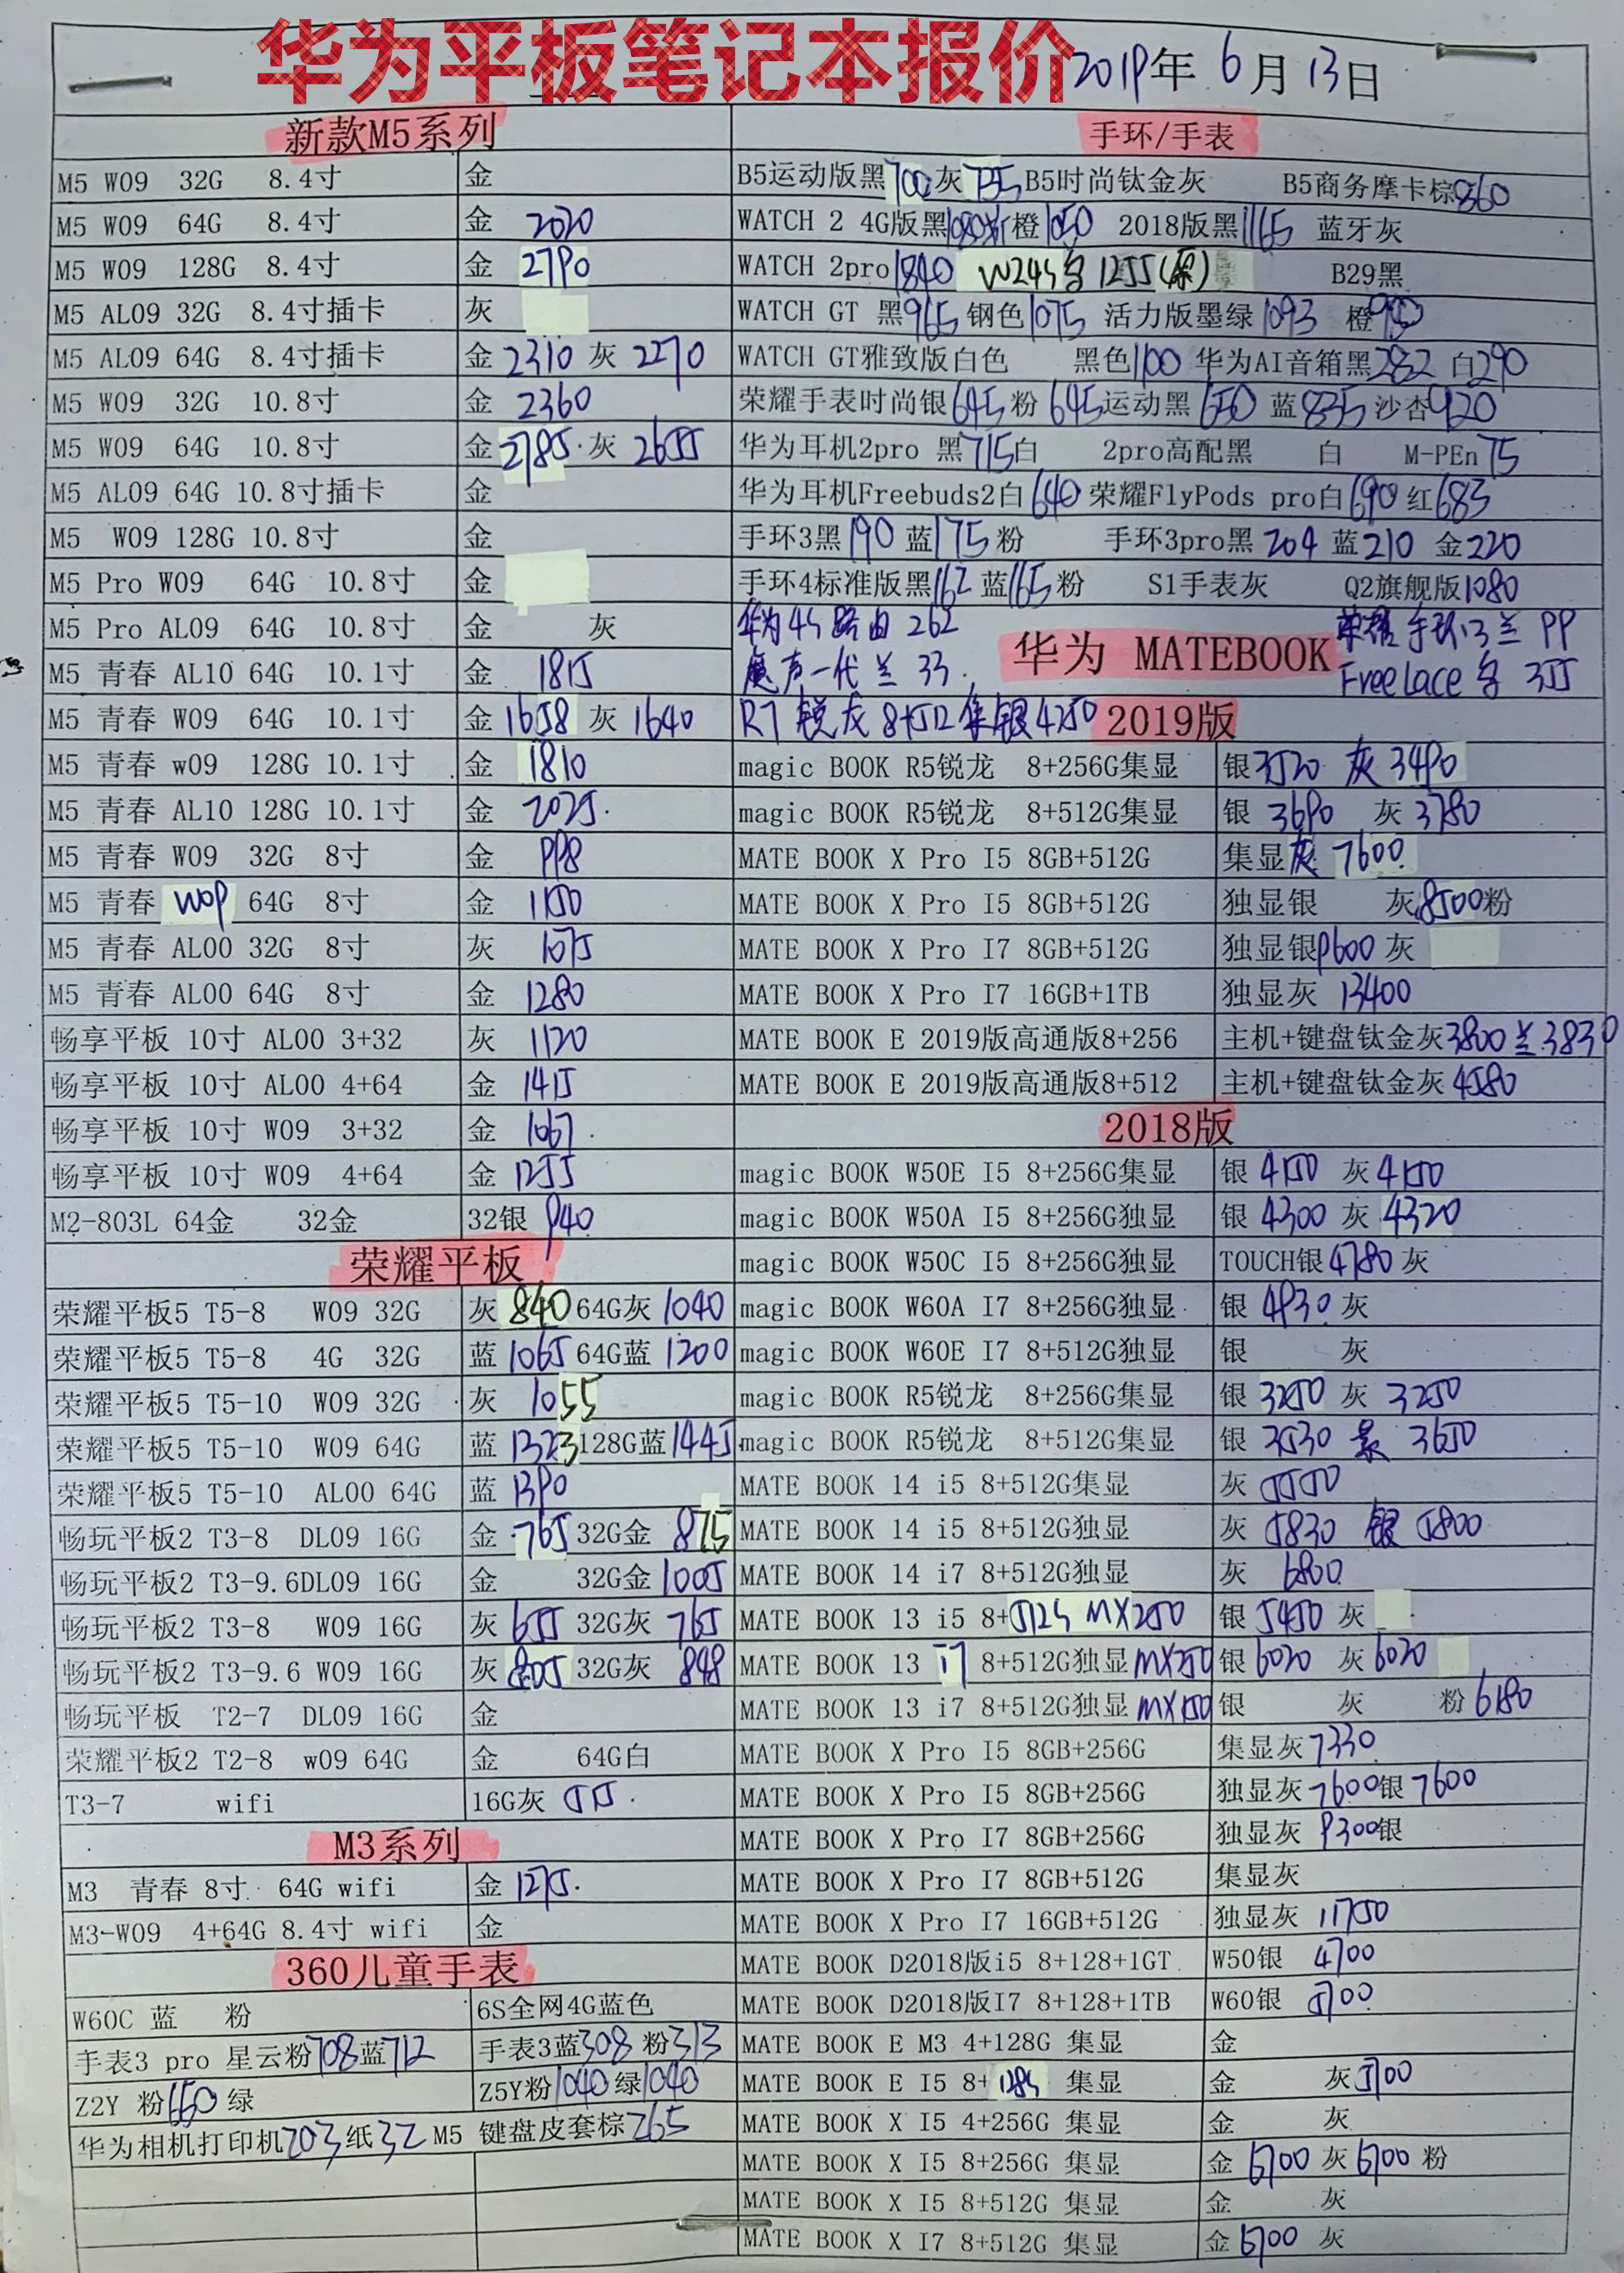 华为平板笔记本报价 2019年 6月 13日
新款M5系列
M5 W09 32G 8.4寸 金
M5 W09 64G 8.4寸 金 2020
M5 W09 128G 8.4寸 金 2790
M5 AL09 32G 8.4寸插卡 灰
M5 AL09 64G 8.4寸插卡 金 2310 灰 2270
M5 W09 32G 10.8寸 金 2360
M5 W09 64G 10.8寸 金 2785 灰 2655
M5 AL09 64G 10.8寸插卡 金
M5 W09 128G 10.8寸 金
M5 Pro W09 64G 10.8寸 金
M5 Pro AL09 64G 10.8寸 金 灰
M5 青春 AL10 64G 10.1寸 金 1815
M5 青春 W09 64G 10.1寸 金 1658 灰 1640
M5 青春 w09 128G 10.1寸 金 1810
M5 青春 AL10 128G 10.1寸 金 2025
M5 青春 W09 32G 8寸 金 998
M5 青春 W09 64G 8寸 金 1150
M5 青春 AL00 32G 8寸 灰 1075
M5 青春 AL00 64G 8寸 金 1280
畅享平板 10寸 AL00 3+32 灰 1120
畅享平板 10寸 AL00 4+64 金 1415
畅享平板 10寸 W09 3+32 金 1067
畅享平板 10寸 W09 4+64 金 1255
M2-803L 64金 32金 32银 940
荣耀平板
荣耀平板5 T5-8 W09 32G 灰 840 64G灰 1040
荣耀平板5 T5-8 4G 32G 蓝 1065 64G蓝 1200
荣耀平板5 T5-10 W09 32G 灰 1055
荣耀平板5 T5-10 W09 64G 蓝 1323 128G蓝 1445
荣耀平板5 T5-10 AL00 64G 蓝 1390
畅玩平板2 T3-8 DL09 16G 金 765 32G金 875
畅玩平板2 T3-9.6DL09 16G 金 32G金 1005
畅玩平板2 T3-8 W09 16G 灰 655 32G灰 765
畅玩平板2 T3-9.6 W09 16G 灰 805 32G灰 848
畅玩平板 T2-7 DL09 16G 金
荣耀平板2 T2-8 w09 64G 金 64G白
T3-7 wifi 16G灰
M3系列
M3 青春 8寸 64G wifi 金 1275
M3-W09 4+64G 8.4寸 wifi 金
360儿童手表
W60C 蓝 粉 6S全网4G蓝色
手表3 pro 星云粉708蓝712 手表3蓝308 粉313
Z2Y 粉650 绿 Z5Y粉1040绿1040
华为相机打印机203纸32 M5 键盘皮套棕265
手环/手表
B5运动版黑700灰735 B5时尚钛金灰 B5商务摩卡棕860
WATCH 2 4G版黑 橙1050 2018版黑1165 蓝牙灰
WATCH 2pro1840 B29黑
WATCH GT 黑965 钢色1075 活力版墨绿1093 橙
WATCH GT雅致版白色 黑色1100 华为AI音箱黑282 白290
荣耀手表时尚银645粉 645运动黑650 蓝835沙杏920
华为耳机2pro 黑715白 2pro高配黑 白 M-PEn 75
华为耳机Freebuds2白640荣耀FlyPods pro白690红683
手环3黑190蓝175粉 手环3pro黑 204 蓝210 金220
手环4标准版黑162蓝165粉 S1手表灰 Q2旗舰版1080
华为4G路由 262
魔声一代 兰 33
华为 MATEBOOK
荣耀手环3 兰 99
Freelace 355
R7 锐龙 8+512 集银4250 2019版
magic BOOK R5锐龙 8+256G集显 银3520 灰 3490
magic BOOK R5锐龙 8+512G集显 银 3690 灰 3780
MATE BOOK X Pro I5 8GB+512G 集显灰 7600
MATE BOOK X Pro I5 8GB+512G 独显银 灰8500粉
MATE BOOK X Pro I7 8GB+512G 独显银9600 灰
MATE BOOK X Pro I7 16GB+1TB 独显灰 13400
MATE BOOK E 2019版高通版8+256 主机+键盘钛金灰3800 兰3830
MATE BOOK E 2019版高通版8+512 主机+键盘钛金灰 4580
2018版
magic BOOK W50E I5 8+256G集显 银 4150 灰4150
magic BOOK W50A I5 8+256G独显 银 4300 灰 4320
magic BOOK W50C I5 8+256G独显 TOUCH银4780 灰
magic BOOK W60A I7 8+256G独显 银 4930 灰
magic BOOK W60E I7 8+512G独显 银 灰
magic BOOK R5锐龙 8+256G集显 银 3250 灰 3250
magic BOOK R5锐龙 8+512G集显 银 3530 3650
MATE BOOK 14 i5 8+512G集显 灰 5550
MATE BOOK 14 i5 8+512G独显 灰 5830 银 5800
MATE BOOK 14 i7 8+512G独显 灰 6800
MATE BOOK 13 i5 8+512G MX250 银 5450 灰
MATE BOOK 13 i7 8+512G独显MX250 银 6020 灰6020
MATE BOOK 13 i7 8+512G独显MX150 银 灰 粉 6180
MATE BOOK X Pro I5 8GB+256G 集显灰7330
MATE BOOK X Pro I5 8GB+256G 独显灰7600银7600
MATE BOOK X Pro I7 8GB+256G 独显灰 9300银
MATE BOOK X Pro I7 8GB+512G 集显灰
MATE BOOK X Pro I7 16GB+512G 独显灰 11750
MATE BOOK D2018版i5 8+128+1GT W50银 4700
MATE BOOK D2018版I7 8+128+1TB W60银 5700
MATE BOOK E M3 4+128G 集显 金
MATE BOOK E I5 8+128G 集显 金 灰5700
MATE BOOK X I5 4+256G 集显 金 灰
MATE BOOK X I5 8+256G 集显 金 6700 灰6700 粉
MATE BOOK X I5 8+512G 集显 金 灰
MATE BOOK X I7 8+512G 集显 金6700 灰